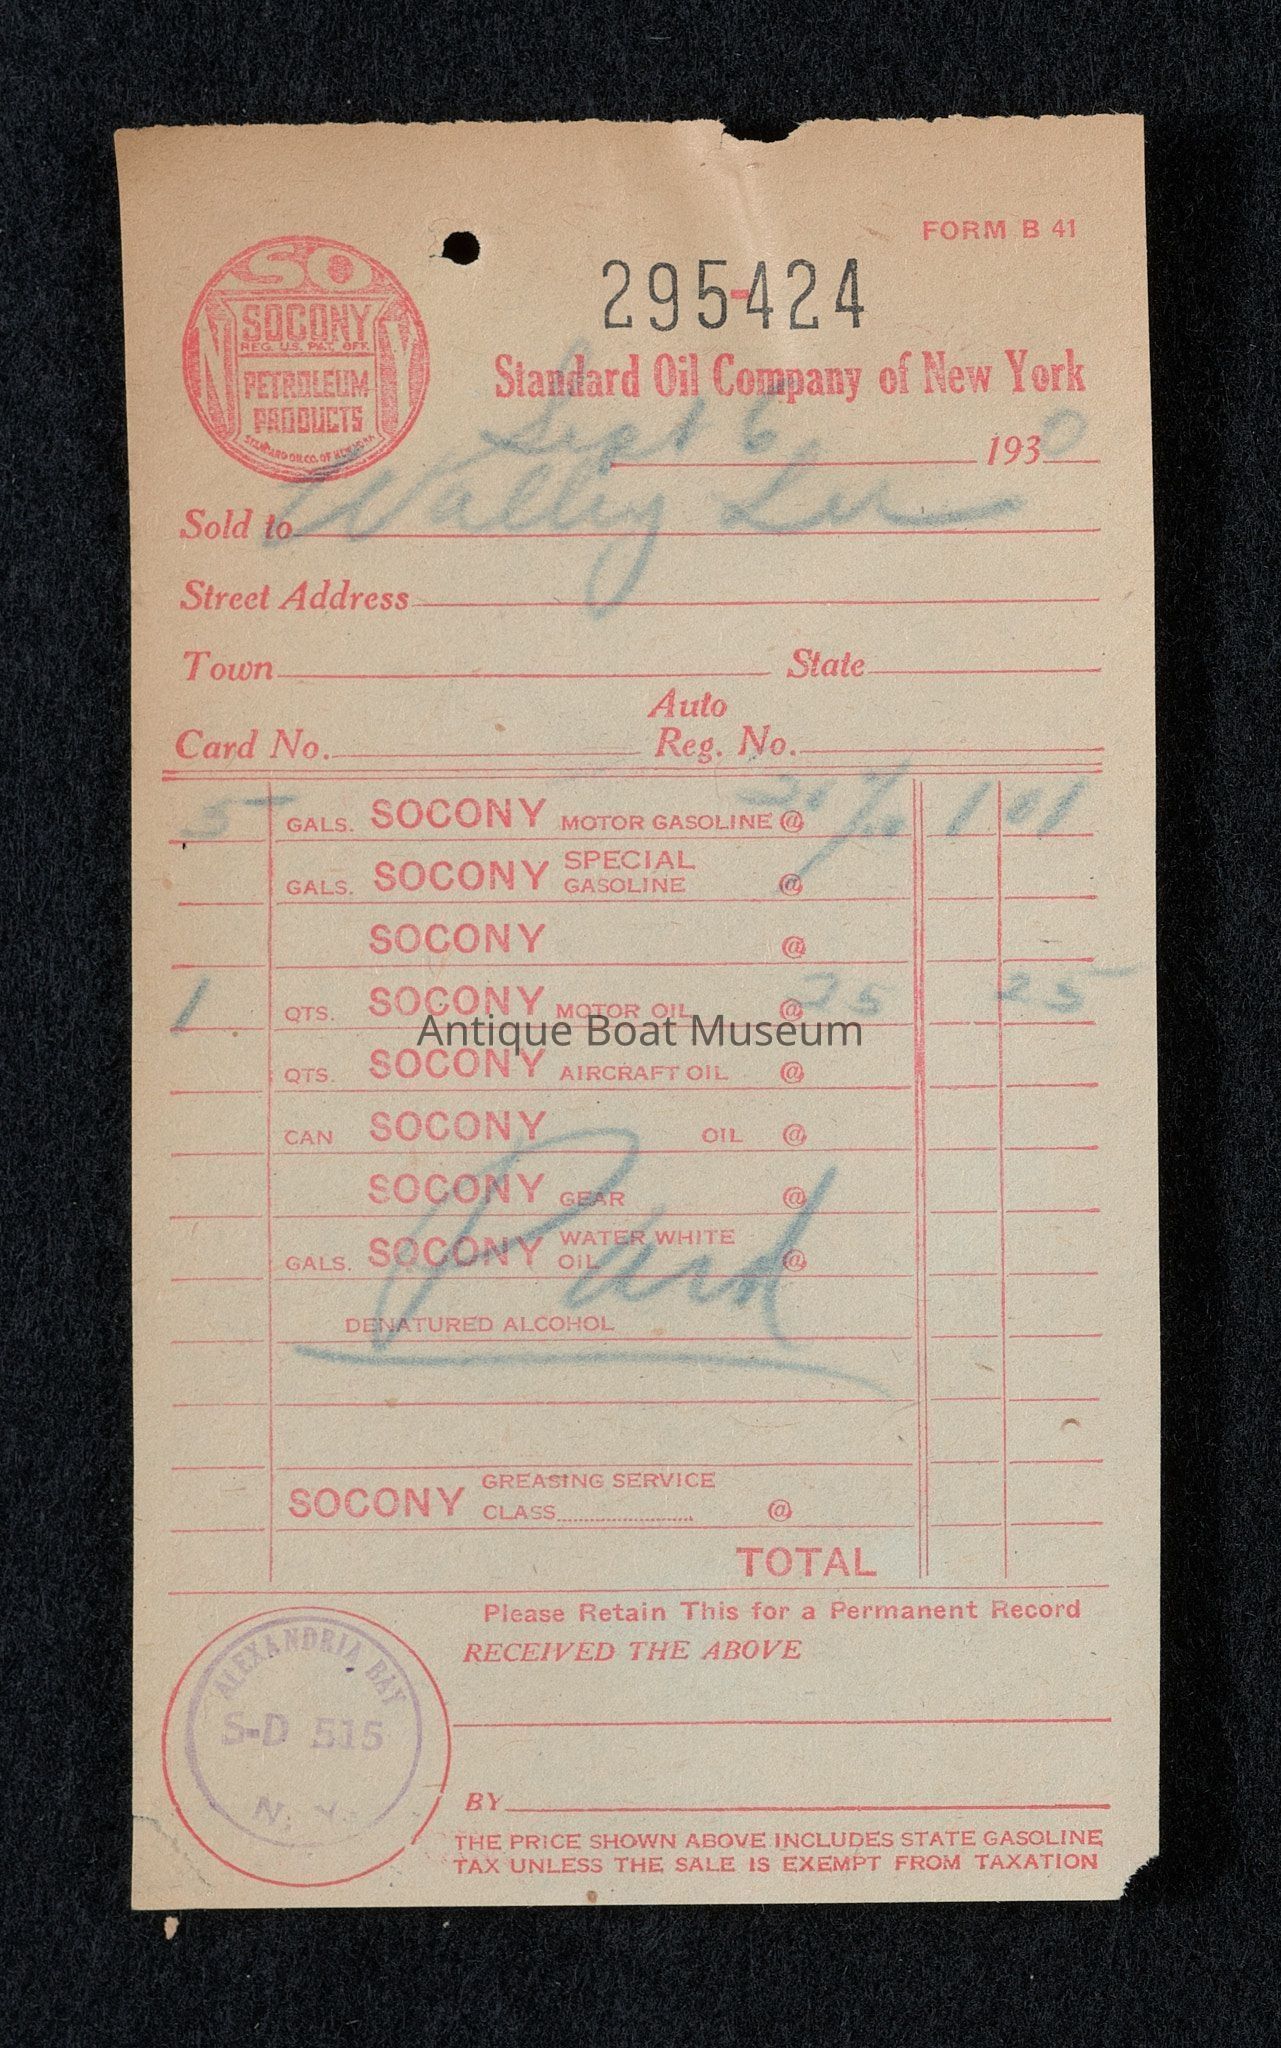 FORM B 41
295-424
SO
SOCONY
REG. U.S. PAT. OFF.
PETROLEUM
PRODUCTS
STANDARD OIL CO. OF NEW YORK
N Y
Standard Oil Company of New York
Sept 6 1930
Sold to Walley
Street Address
Town State
Auto
Card No. Reg. No.
5 GALS. SOCONY MOTOR GASOLINE @ 1 01
GALS. SOCONY SPECIAL GASOLINE @
SOCONY @
1 QTS. SOCONY MOTOR OIL @ 25 25
Antique Boat Museum
QTS. SOCONY AIRCRAFT OIL @
CAN SOCONY OIL @
SOCONY GEAR @
GALS. SOCONY WATER WHITE OIL @
Paid
DENATURED ALCOHOL
SOCONY GREASING SERVICE
CLASS @
TOTAL
Please Retain This for a Permanent Record
RECEIVED THE ABOVE
ALEXANDRIA BAY
S-D 515
N. Y.
BY
THE PRICE SHOWN ABOVE INCLUDES STATE GASOLINE
TAX UNLESS THE SALE IS EXEMPT FROM TAXATION